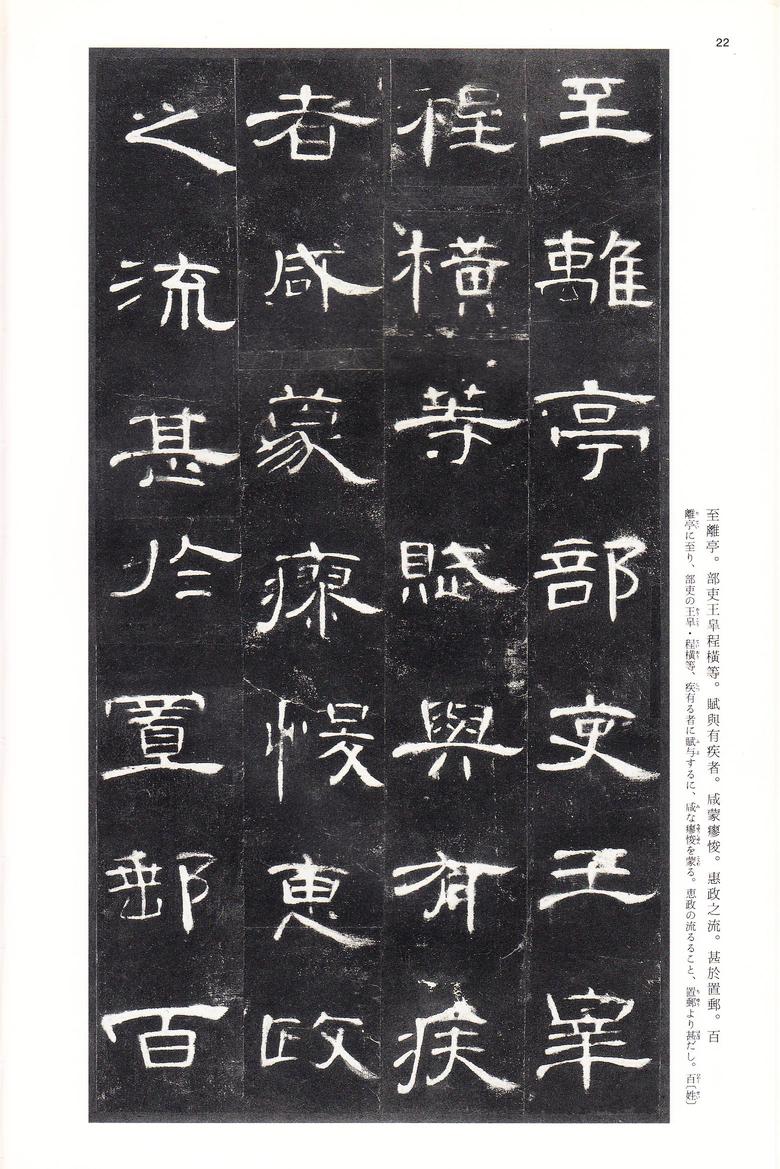 22
至離亭部吏王睪
程橫等賦與有疾
者咸蒙瘳悛惠政
之流甚於置郵百
至離亭。部吏王皐程橫等。賦與有疾者。咸蒙瘳悛。惠政之流。甚於置郵。百
離亭に至り、部吏の王皐・程橫等、疾有る者に賦与するに、咸な瘳悛を蒙る。恵政の流るること、置郵より甚だし。百〔姓〕